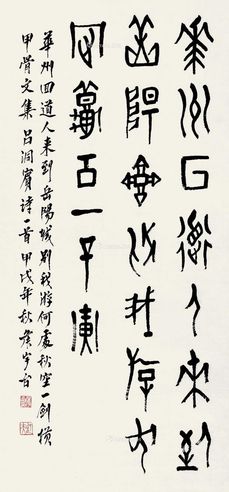 華州回道人來到
岳陽城別我游何
處秋空一劍橫
華州回道人来到岳陽城别我游何處秋空一劍横
甲骨文集吕洞賓詩首甲戌年秋